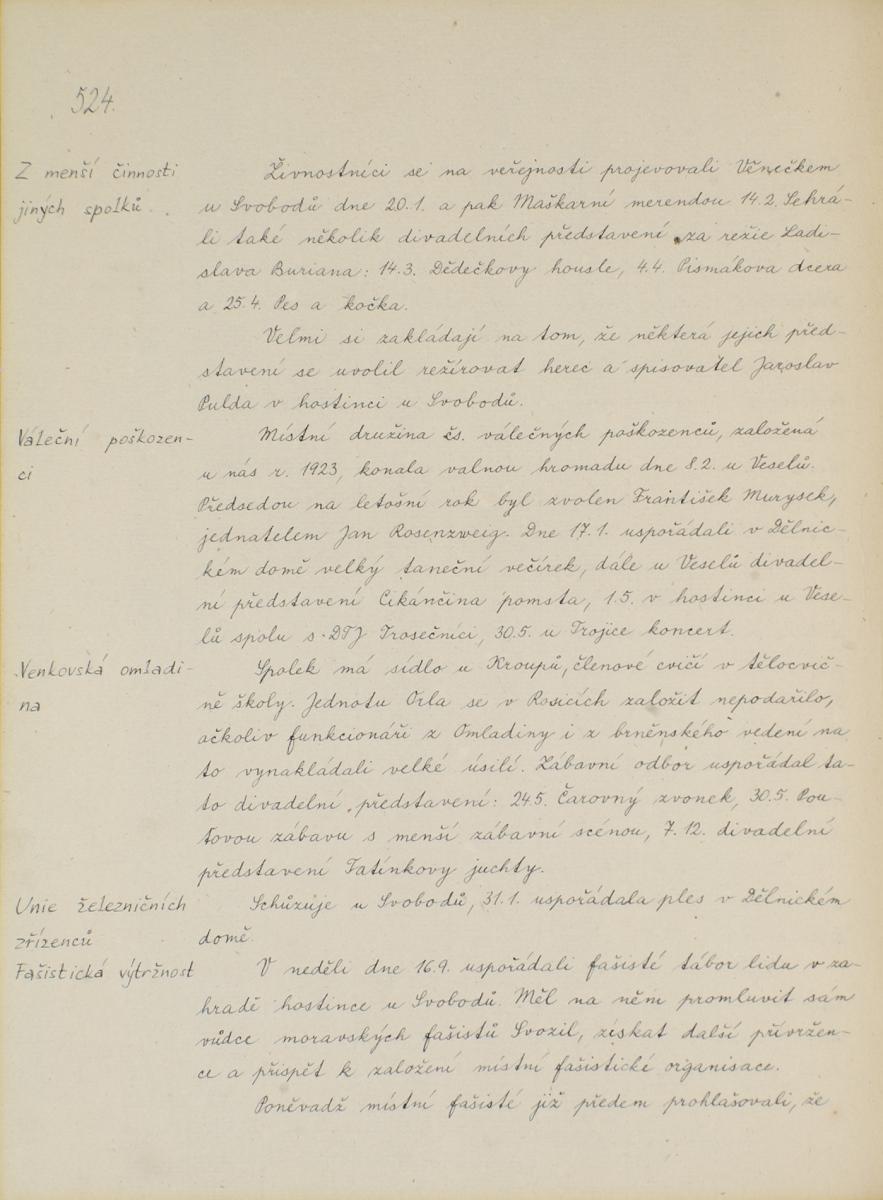 524.
Z menší činnosti
jiných spolků.
Živnostníci se na veřejnosti projevovali Věnečkem
u Svobodů dne 20.1. a pak Maškarní merendou 14.2. Sehrá-
li také několik divadelních představení za režie Ladi-
slava Buriana: 14.3. Dědečkovy housle, 4.4. Písmákova dcera
a 25.4. Pes a kočka.
Velmi si zakládají na tom, že některá jejich před-
stavení se uvolil režírovat herec a spisovatel Jaroslav
Pulda v hostinci u Svobodů.
Váleční poškozen-
ci
Místní družina čs. válečných poškozenců, založená
u nás r. 1923, konala valnou hromadu dne 8.2. u Veselů.
Předsedou na letošní rok byl zvolen František Murysek,
jednatelem Jan Rosenzweig. Dne 17.1. uspořádali v Dělnic-
kém domě velký taneční večírek, dále u Veselů divadel-
ní představení Cikánčina pomsta, 1.5. v hostinci u Vese-
lů spolu s DTJ Trosečníci, 30.5. u Trojice koncert.
Venkovská omladi-
na
Spolek má sídlo u Kroupů, členové cvičí v tělocvič-
ně školy. Jednotu Orla se v Rosicích založit nepodařilo,
ačkoliv funkcionáři z Omladiny i z brněnského vedení na
to vynakládali velké úsilí. Zábavní odbor uspořádal ta-
to divadelní představení: 24.5. Čarovný zvonek, 30.5. Pou-
ťovou zábavu s menší zábavní scénou, 7.12. divadelní
představení Tatínkovy juchty.
Unie železničních
zřízenců
Schůzuje u Svobodů, 31.1. uspořádala ples v Dělnickém
domě.
Fašistická výtržnost
V neděli dne 16.9. uspořádali fašisté tábor lidu v za-
hradě hostince u Svobodů. Měl na něm promluvit sám
vůdce moravských fašistů Svozil, získat další přívržen-
ce a přispět k založení místní fašistické organisace.
Poněvadž místní fašisté již předem prohlašovali, že